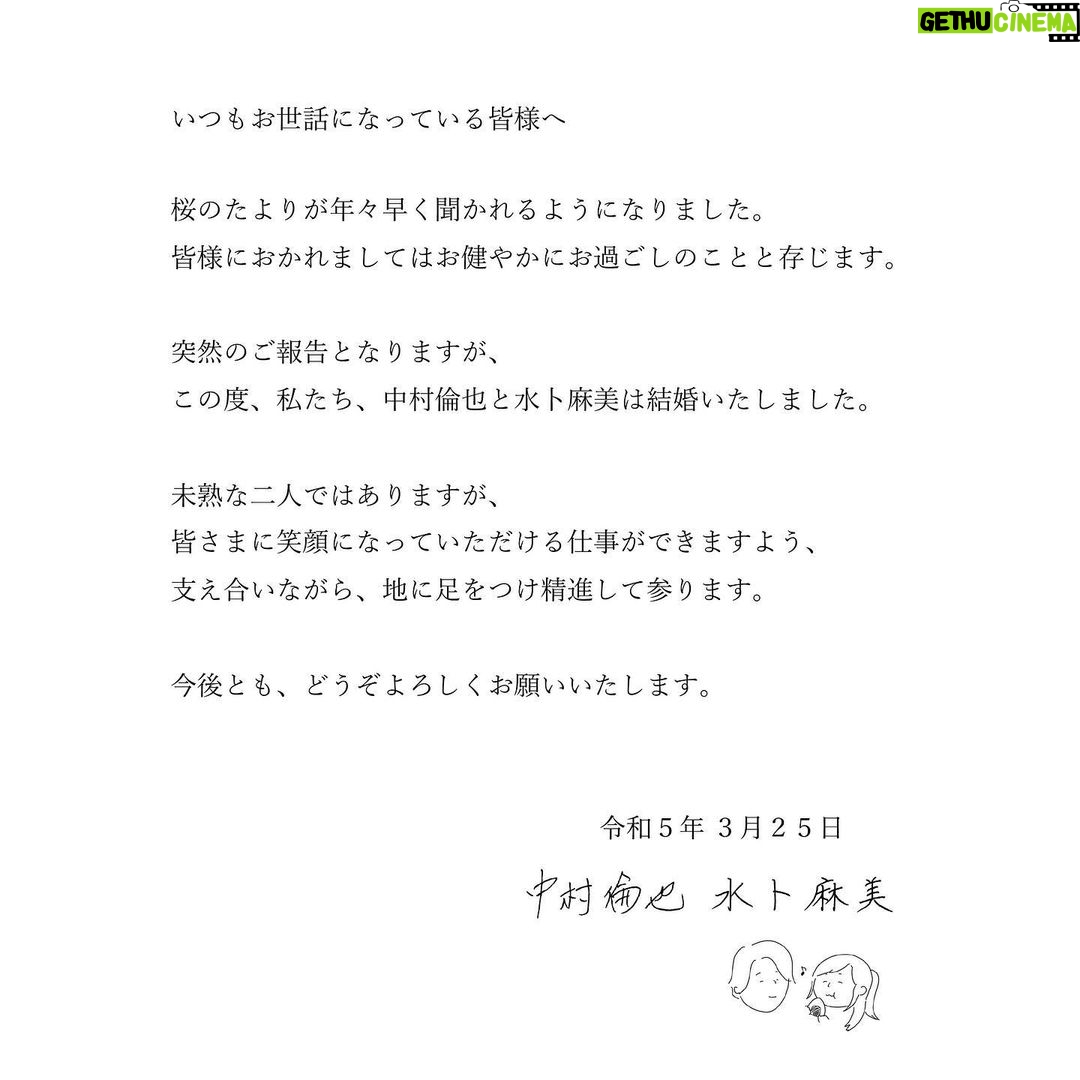 GETHUCINEMA
いつもお世話になっている皆様へ
桜のたよりが年々早く聞かれるようになりました。
皆様におかれましてはお健やかにお過ごしのことと存じます。
突然のご報告となりますが、
この度、私たち、中村倫也と水卜麻美は結婚いたしました。
未熟な二人ではありますが、
皆さまに笑顔になっていただける仕事ができますよう、
支え合いながら、地に足をつけ精進して参ります。
今後とも、どうぞよろしくお願いいたします。
令和５年 ３月２５日
中村倫也 水卜麻美